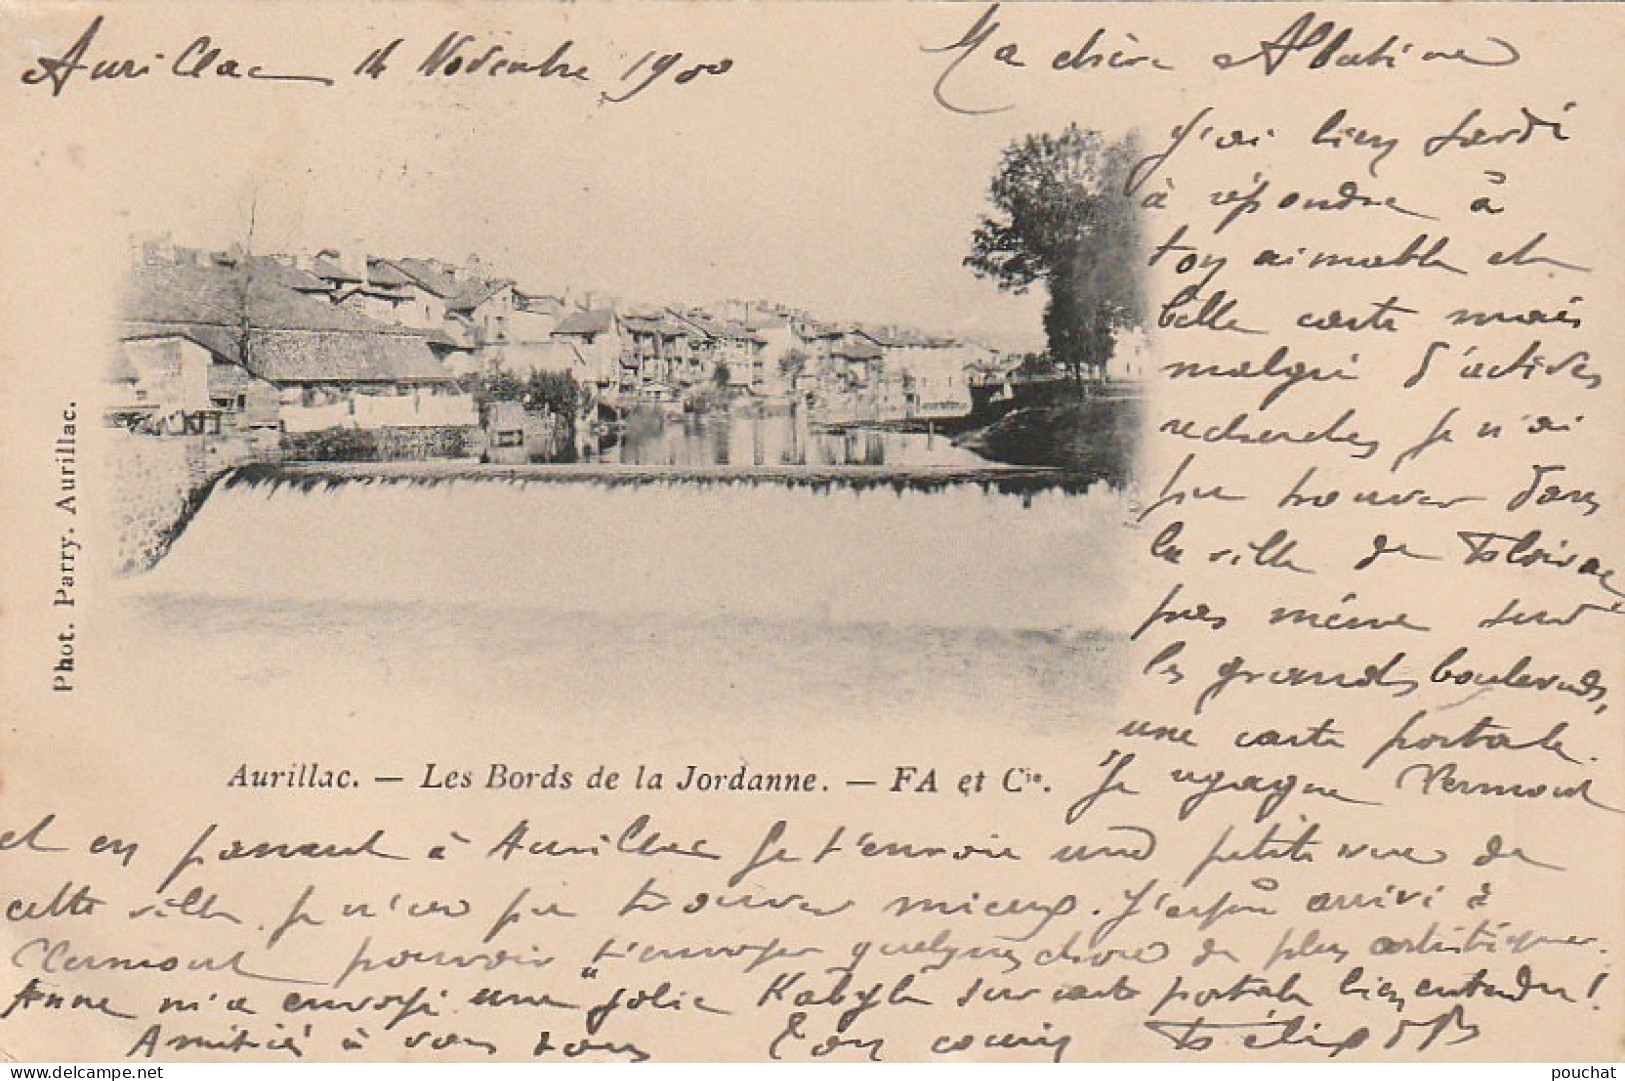 Aurillac 14 Novembre 1900
Ma chère Albertine
J'ai bien tardé
à répondre à
ton aimable et
belle carte mais
malgré d'actives
recherches je n'ai
pu trouver dans
la ville de Floirac
pas même sur
les grands boulevards,
une carte postale.
Je regagne Clermont
et en passant à Aurillac je t'envoie une petite vue de
cette ville. Je n'ai pu trouver mieux. J'espère arrivé à
Clermont pouvoir t'envoyer quelque chose de plus artistique.
Anne m'a envoyé une "jolie Kabyle sur carte postale bien entendu!
Amitiés à vous tous Ton cousin Félix
Phot. Parry. Aurillac.
Aurillac. — Les Bords de la Jordanne. — FA et Cie.
delcampe.net
pouchat